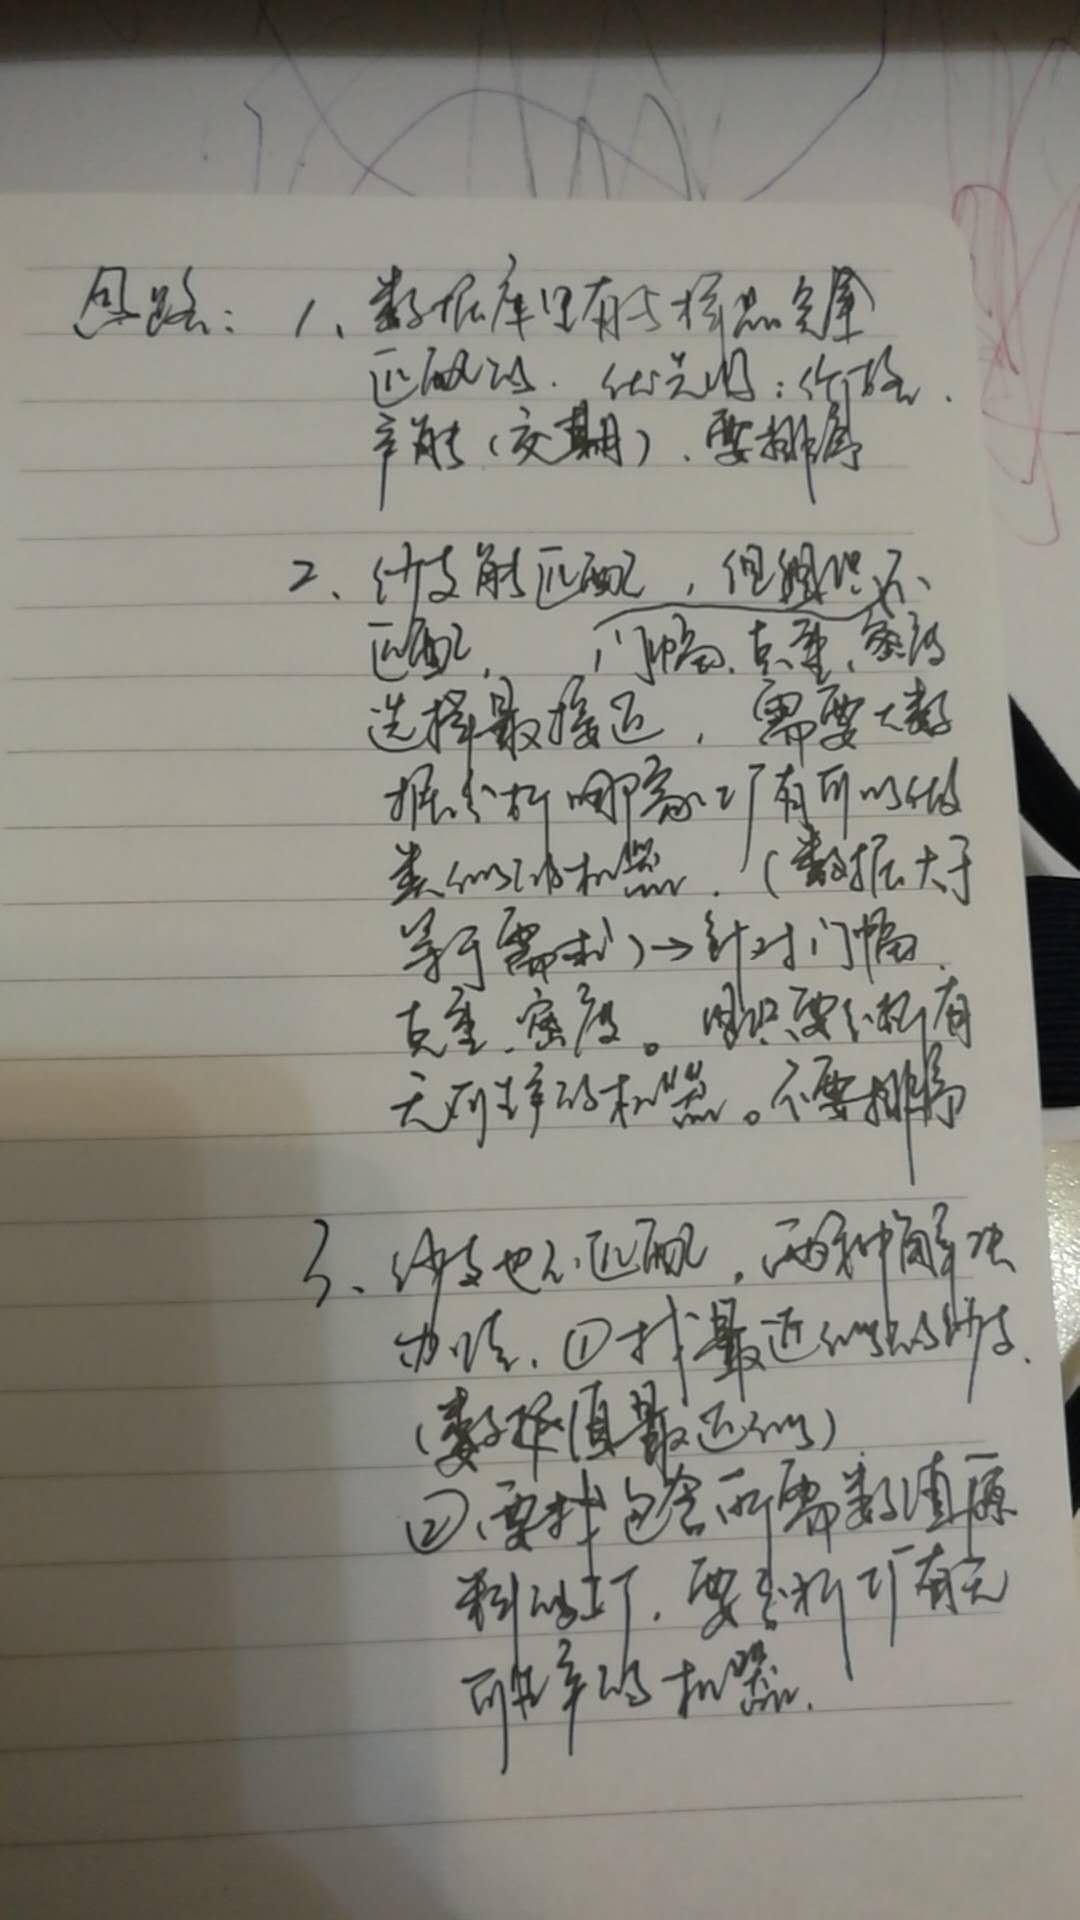 思路：1、数据库里有与样品完全
匹配的．优先级：价格、
产能（交期）、要排序
2、纱支能匹配，但组织不
匹配， 门幅、克重、密度
选择最接近，需要大数
据分析哪家工厂有可以做
类似的机器．（数据大于
等于需求）→针对门幅、
克重、密度。只要分析有
无闲产的机器。不要排序
3、纱支也不匹配，两种解决
办法．①找最近似的纱支．
（数据值最近似）
②、要找包含所需数值原
料的工厂．要分析工厂有无
产的机器．